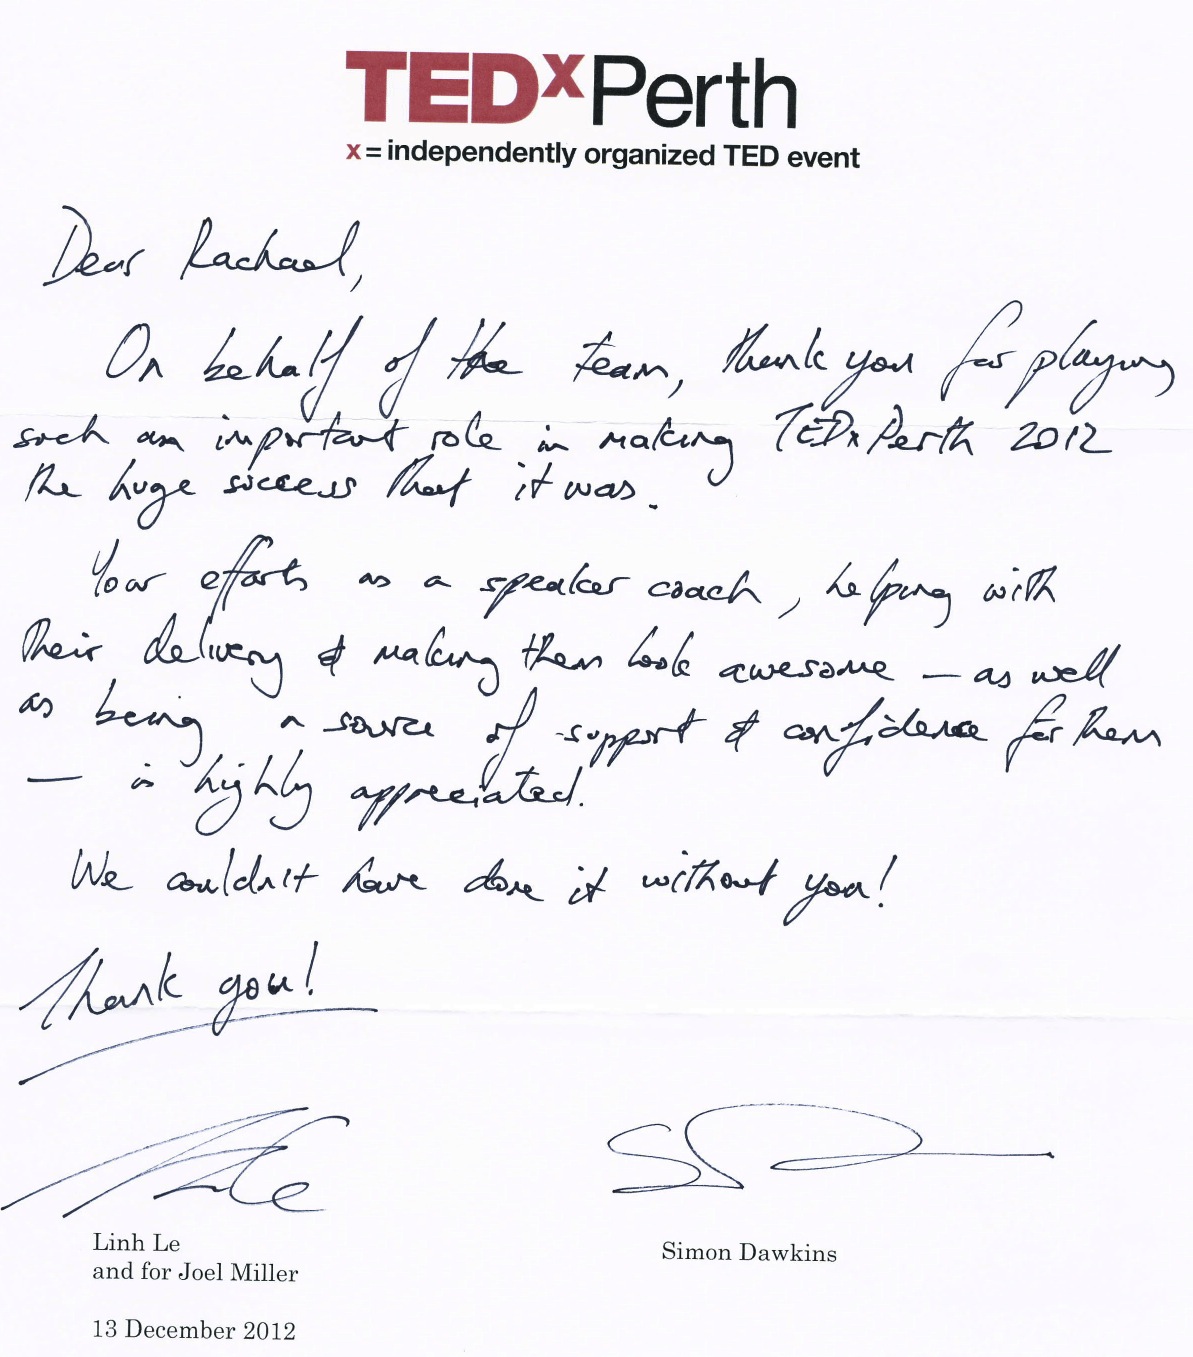 TEDxPerth
x = independently organized TED event
Dear Rachael,
On behalf of the team, thank you for playing
such an important role in making TEDxPerth 2012
the huge success that it was.
Your efforts as a speaker coach, helping with
their delivery & making them look awesome – as well
as being a source of support & confidence for them
– is highly appreciated.
We couldn't have done it without you!
Thank you!
Linh Le
and for Joel Miller
Simon Dawkins
13 December 2012